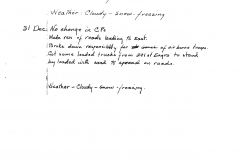 Weather - Cloudy - Snow - freezing
31 Dec. No change in CPs
Make rcn of roads leading to East.
Broke down responsibility for of airborne troops.
Got some loaded trucks from 291st Engrs to stand
by loaded with sand to spread on roads.
Weather - Cloudy - Snow - freezing